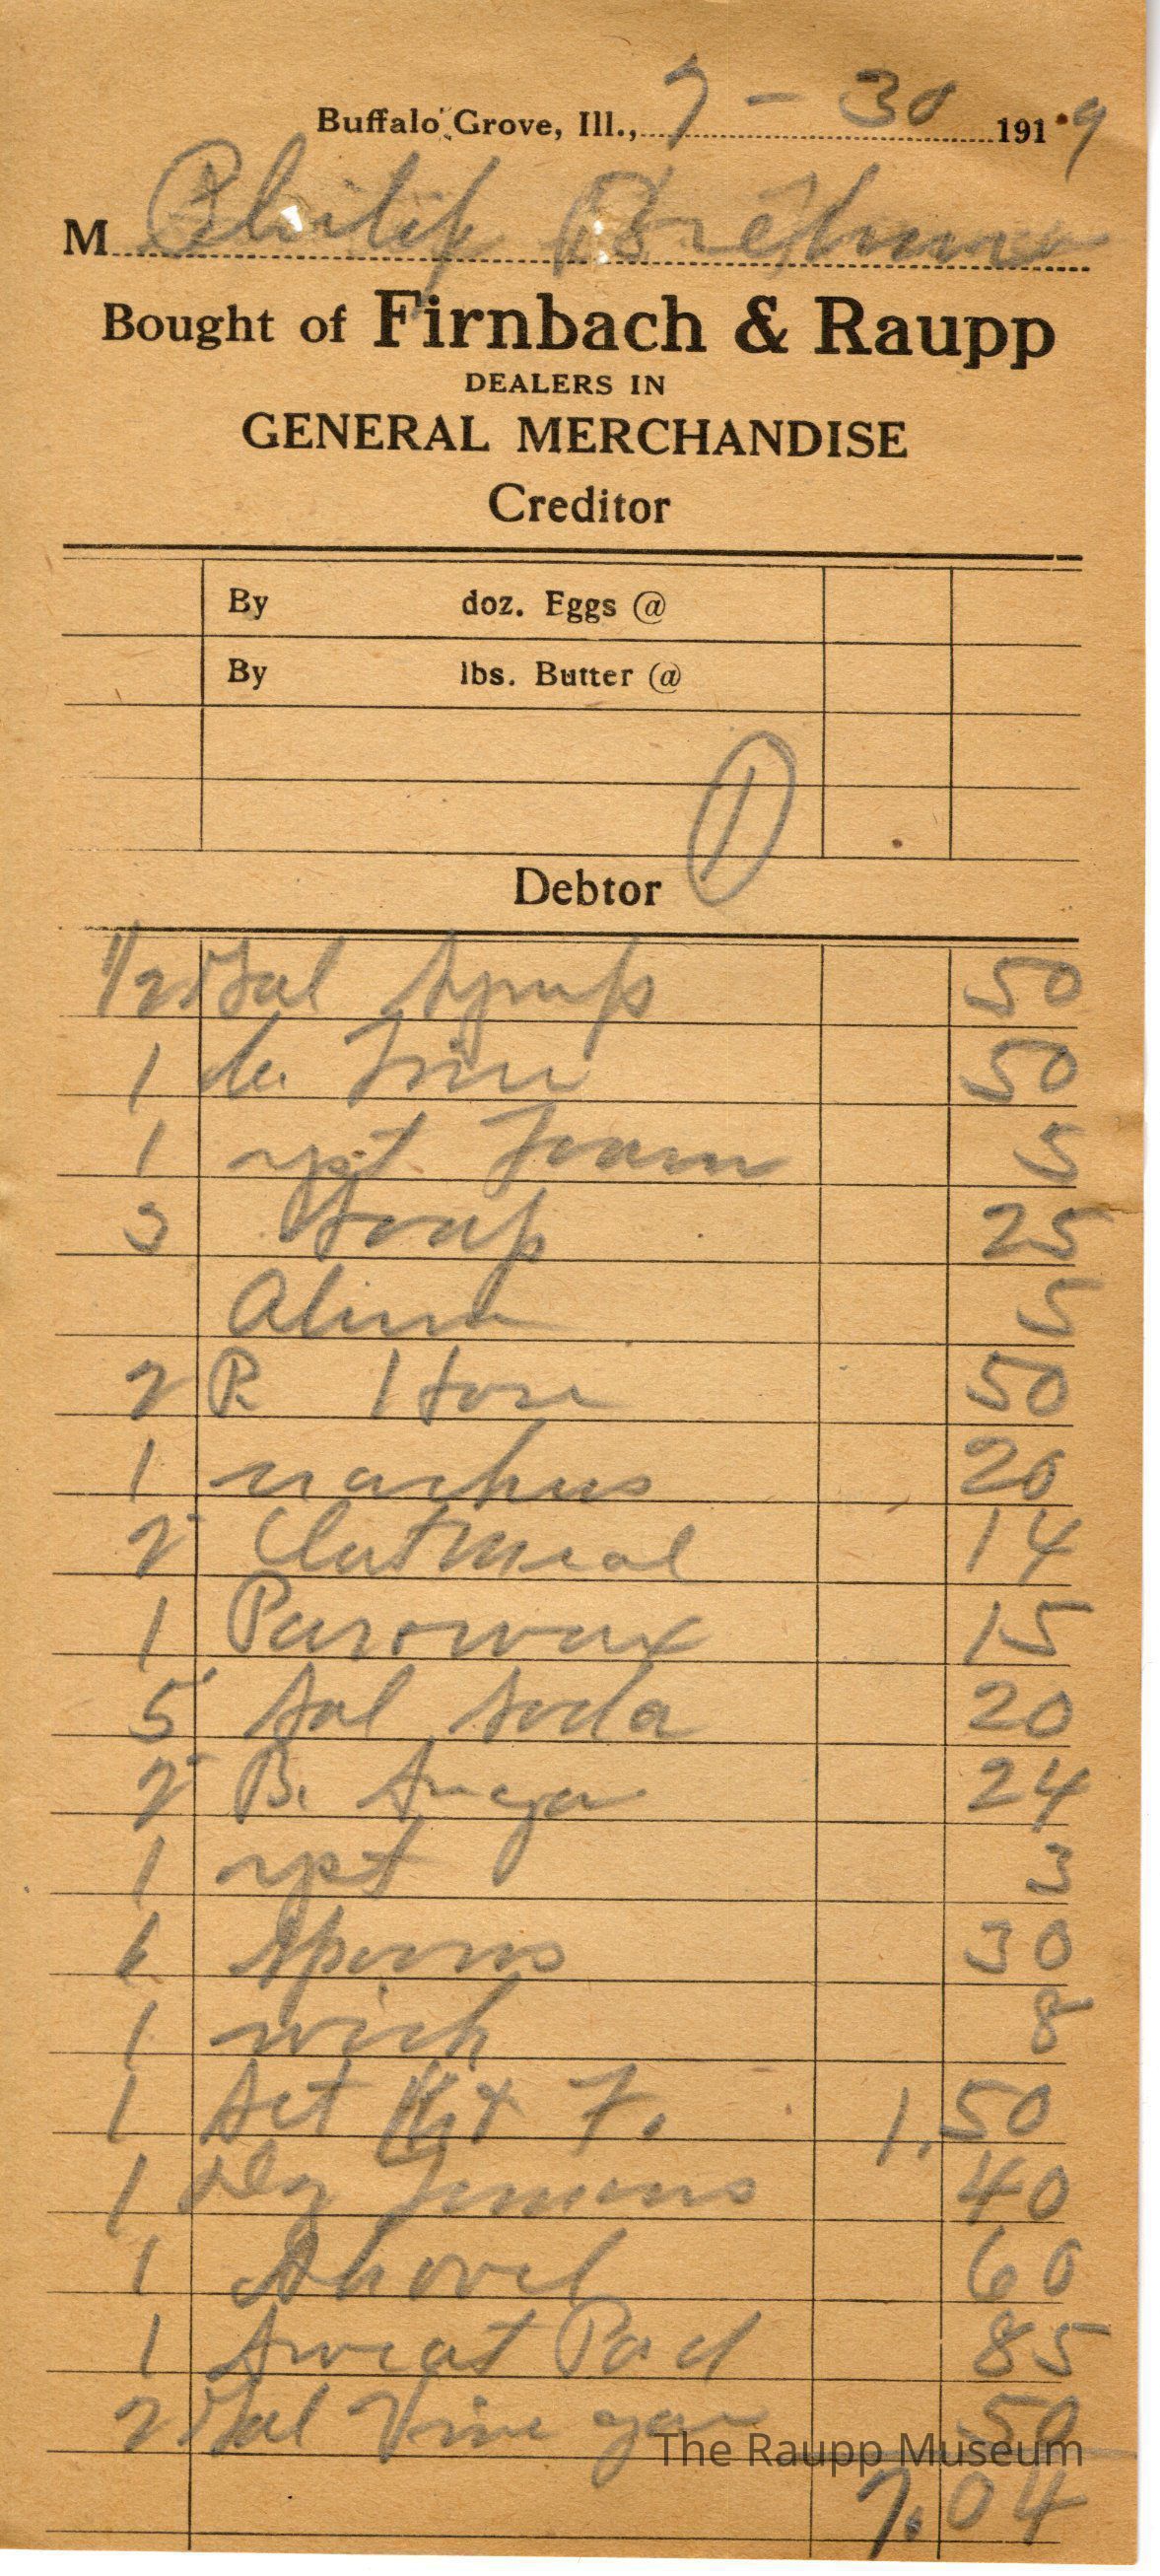 Buffalo Grove, Ill., 7 - 30 1919
M Philip
Bought of Firnbach & Raupp
DEALERS IN
GENERAL MERCHANDISE
Creditor
By doz. Eggs @
By lbs. Butter @
1
Debtor
1/2 Gal Syrup 50
1 50
1 ypt Foam 5
3 Soap 25
Alum 5
2 P. Hose 50
1 20
2 Oatmeal 14
1 Parowax 15
5 Sal Soda 20
2 B. Sugar 24
1 ypt 3
6 Spoons 30
1 wick 8
1 Set K & F. 1.50
1 Dz 40
1 Shovel 60
1 Sweat Pad 85
2 Gal Vine gar 50
The Raupp Museum
7.04